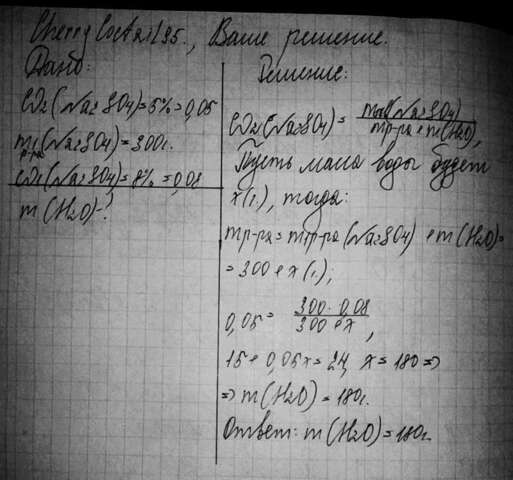 CherryCocta2195., Ваше решение.
Дано:
ω2(Na2SO4)=5%=0,05
m1р-ра(Na2SO4)=300г.
ω1(Na2SO4)=8%=0,08
m(H2O)-?
Решение:
ω2(Na2SO4)= m1(Na2SO4) / mр-ра+m(H2O),
Пусть масса воды будет
x(г.), тогда:
mр-ра=m1р-ра(Na2SO4)+m(H2O)=
=300+x(г.);
0,05= 300·0,08 / 300+x,
15+0,05x=24, x=180=>
=>m(H2O)=180г.
Ответ: m(H2O)=180г.